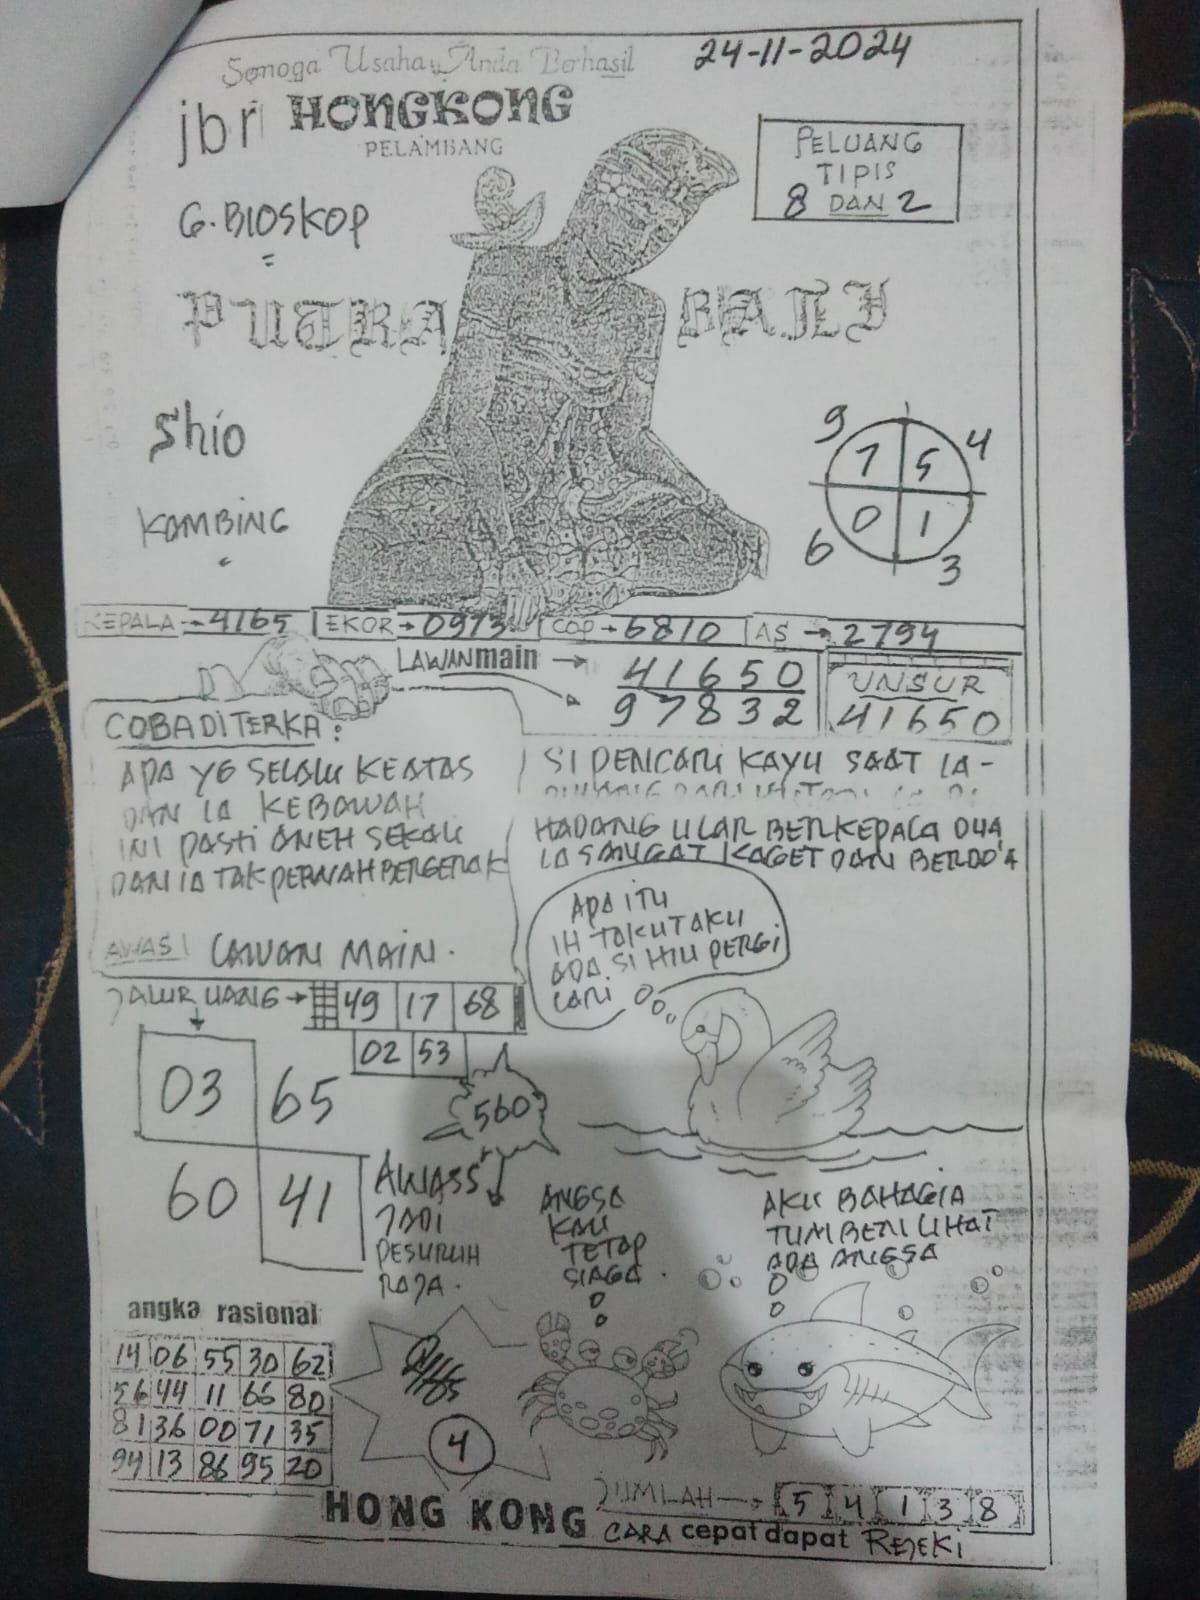 Semoga Usaha Anda Berhasil
24-11-2024
jbr HONGKONG
PELAMBANG
PELUANG
TIPIS
8 DAN 2
G. BIOSKOP
PUTRA BALI
Shio
KAMBING
9 4
7 5
0 1
6 3
KEPALA → 4165 EKOR → 0973 COP → 6810 AS → 2794
LAWAN main → 41650
97832
UNSUR
41650
COBA DITERKA :
APA YG SELALU KEATAS
DAN IA KEBAWAH
INI PASTI ANEH SEKALI
DAN IA TAK PERNAH BERGERAK
AWAS! LAWAN MAIN.
SI PENCARI KAYU SAAT IA-
HADANG ULAR BERKEPALA DUA
IA SANGAT KAGET DAN BERDO'A
APA ITU
IH TAKUT AKU
ADA SI HIU PERGI
LARI
JALUR UANG → 49 17 68
02 53
03 65
60 41
560
AWASS
JADI
PESURUH
RAJA.
ANGSA
KAU
TETAP
SIAGA.
AKU BAHAGIA
TUMBEN LIHAT
ADA ANGSA
angka rasional
14 06 55 30 62
56 44 11 66 80
81 36 00 71 35
94 13 86 95 20
4
JUMLAH → 5 4 1 3 8
HONG KONG CARA cepat dapat REJEKI